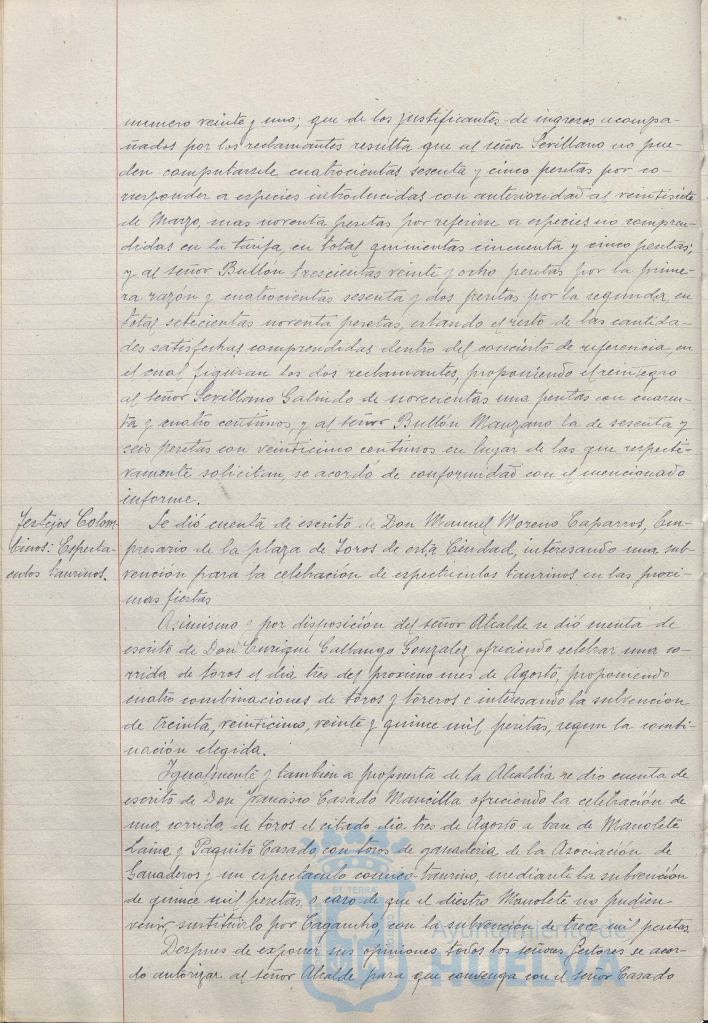 numero veinte y uno; que de los justificantes de ingresos acompa-
ñados por los reclamantes resulta que al señor Sevillano no pue-
den computarsele cuatrocientas sesenta y cinco pesetas por co-
rresponder a especies introducidas con anterioridad al veintisiete
de Marzo, mas noventa pesetas por referirse a especies no compren-
didas en la tarifa, en total quinientas cincuenta y cinco pesetas;
y al señor Bullón trescientas veinte y ocho pesetas por la prime-
ra razón y cuatrocientas sesenta y dos pesetas por la segunda, en
total setecientas noventa pesetas, estando el resto de las cantida-
des satisfechas comprendidas dentro del concierto de referencia, en
el cual figuran los dos reclamantes, proponiendo el reintegro
al señor Sevillano Galindo de novecientas una pesetas con cuaren-
ta y cuatro centimos, y al señor Bullón Manzano la de sesenta y
seis pesetas con veinticinco centimos en lugar de las que respecti-
vamente solicitan, se acordo de conformidad con el mencionado
informe.
Festejos Colom-
binos: Especta-
culos taurinos.
Se dió cuenta de escrito de Don Manuel Moreno Caparros, Em-
presario de la plaza de Toros de esta Ciudad, interesando una sub-
vención para la celebración de espectaculos taurinos en las proxi-
mas fiestas
Asimismo y por disposición del señor Alcalde se dió cuenta de
escrito de Don Enrique Gallango Gonzalez ofreciendo celebrar una co-
rrida de toros el dia tres del proximo mes de Agosto, proponiendo
cuatro combinaciones de toros y toreros e interesando la subvencion
de treinta, veinticinco, veinte y quince mil pesetas, segun la combi-
nación elegida.
Igualmente y tambien a propuesta de la Alcaldia se dio cuenta de
escrito de Don Francisco Casado Mancilla ofreciendo la celebración de
una corrida de toros el citado dia tres de Agosto a base de Manolete
Laine y Paquito Casado con toros de ganaderia de la Asociación de
Ganaderos y un espectaculo comico-taurino, mediante la subvención
de quince mil pesetas, o caso de que el diestro Manolete no pudiera
venir, sustituirlo por Cagancho, con la subvención de trece mil pesetas
Despues de exponer sus opiniones todos los señores Gestores se acor-
do autorizar al señor Alcalde para que convenga con el señor Casado
ET TERRÆ
Ayuntamiento de
HUELVA